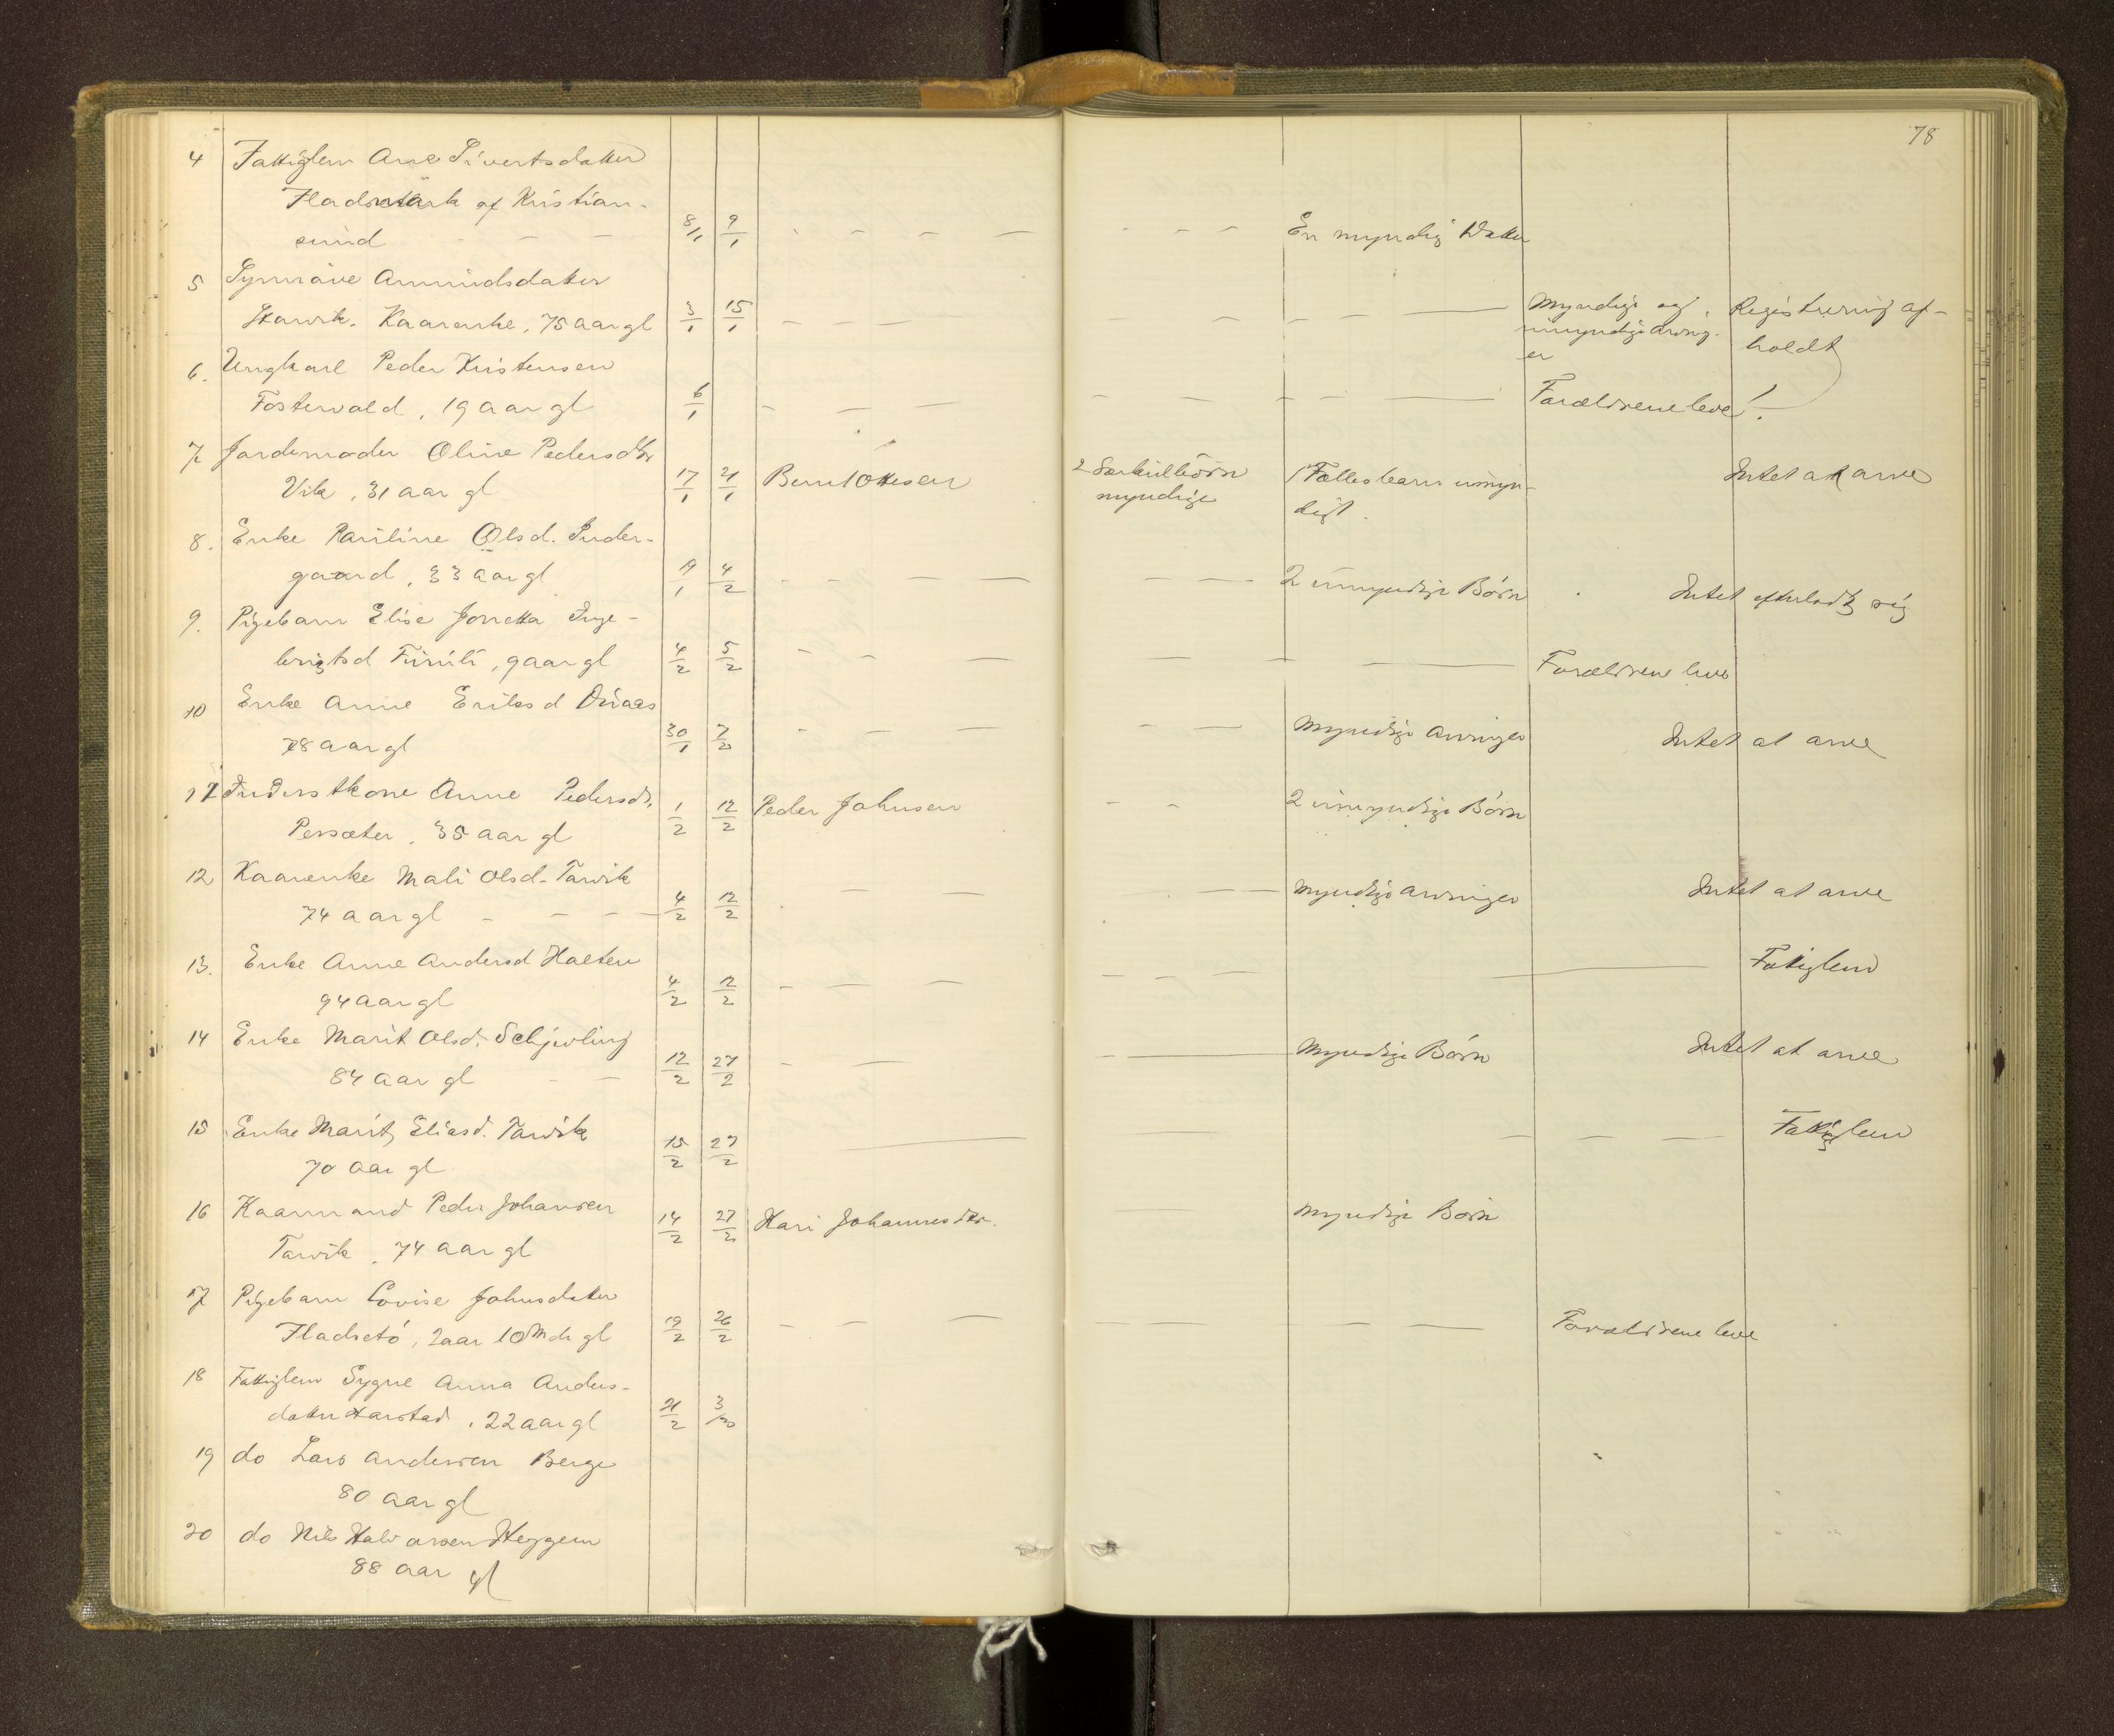 78
4 Fattiglem Ane Sivertsdatter
Fladsetærk af Kristian-
sund - - - 8/1 9/1 - - - - - - - En myndig Datter
5 Synnøve Amundsdatter
Skarvik, Kaarenke, 75 aar gl 3/1 15/1 - - - - - - - Myndige og Registrering af-
umyndige arving- holdt
er
6. Ungkarl Peder Kristensen
Fostervold, 19 aar gl 6/1 - - - - - - - Forældrene leve!
7 Jordemoder Oline Pedersdtr
Vik, 31 aar gl 17/1 21/1 Bernt Ottesen 2 Særkulbörn 1 Fællesbarn umyn- Intet at arve
myndige digt.
8. Enke Pauline Olsd. Inder-
gaard, 33 aar gl 19/1 4/2 - - - - - - - 2 umyndige Börn Intet efterladt sig
9. Pigebarn Elise Jonetta Inge-
brigtsd Furuli, 9 aar gl 4/2 5/2 - - - - - - - Forældrene leve
10 Enke Anne Eriksd
78 aar gl 30/1 7/2 - - - - - Myndige Arvinger Intet at arve
11 Inderstkone Anne Pedersdr,
Persæter, 35 aar gl 1/2 12/2 Peder Johnsen - - 2 umyndige Börn
12 Kaarenke Mali Olsd. Tarvik
74 aar gl - - - 4/2 12/2 - - - - - Myndige arvinger Intet at arve
13. Enke Anne Andersd Holten
94 aar gl 4/2 12/2 - - - - - - - Fatiglem
14 Enke Marit Olsd. Schjevling
84 aar gl - - 12/2 27/2 - - - Myndige Börn Intet at arve
15 Enke Marit Eliasd. Tarvik
70 aar gl 15/2 27/2 - - - - Fattiglem
16 Kaarmand Peder Johansen
Tarvik, 74 aar gl 14/2 27/2 Kari Johannesdtr. - - Myndige Börn
17 Pigebarn Lovise Johnsdatter
Fladsetö, 2 aar 10 Mdr gl 19/2 26/2 - - - - - - - Forældrene leve
18 Fattiglem Sygne Anna Anders-
datter Harstad, 22 aar gl 21/2 3/3
19 do Lars Andersen Berge
80 aar gl
20 do Nils Halvorsen Heggem
88 aar gl